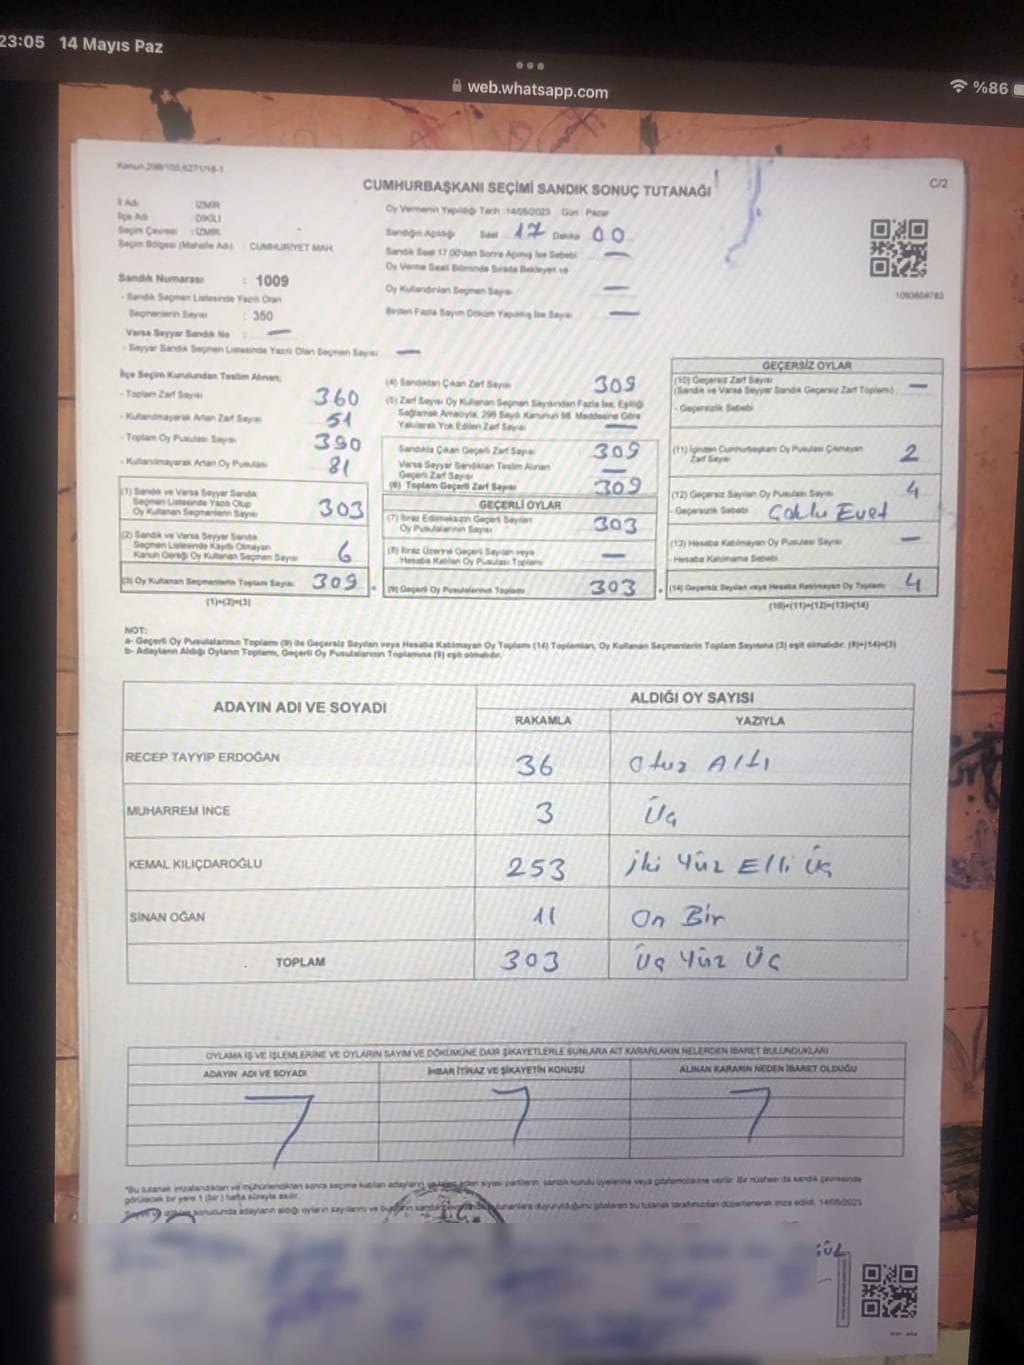 23:05 14 Mayıs Paz
web.whatsapp.com
%86
CUMHURBAŞKANI SEÇİMİ SANDIK SONUÇ TUTANAĞI
C/2
İl Adı : İZMİR
İlçe Adı : DİKİLİ
Seçim Çevresi : İZMİR
Seçim Bölgesi (Mahalle Adı) : CUMHURİYET MAH.
Sandık Numarası : 1009
- Sandık Seçmen Listesinde Yazılı Olan
Seçmenlerin Sayısı : 350
Varsa Seyyar Sandık No —
- Seyyar Sandık Seçmen Listesinde Yazılı Olan Seçmen Sayısı —
Oy Vermenin Yapıldığı Tarih : 14/05/2023 Gün : Pazar
Sandığın Açıldığı Saat 17 Dakika 00
Sandık Saat 17.00'den Sonra Açılmış İse Sebebi —
Oy Verme Saati Bitiminde Sırada Bekleyen ve
Oy Kullandırılan Seçmen Sayısı —
Birden Fazla Sayım Döküm Yapılmış İse Sayısı —
1093858783
İlçe Seçim Kurulundan Teslim Alınan;
- Toplam Zarf Sayısı 360
- Kullanılmayarak Artan Zarf Sayısı 51
- Toplam Oy Pusulası Sayısı 390
- Kullanılmayarak Artan Oy Pusulası 81
(1) Sandık ve Varsa Seyyar Sandık
Seçmen Listesinde Yazılı Olup
Oy Kullanan Seçmenlerin Sayısı 303
(2) Sandık ve Varsa Seyyar Sandık
Seçmen Listesinde Kayıtlı Olmayan
Kanun Gereği Oy Kullanan Seçmen Sayısı 6
(3) Oy Kullanan Seçmenlerin Toplam Sayısı 309
(1)+(2)=(3)
(4) Sandıktan Çıkan Zarf Sayısı 309
(5) Zarf Sayısı Oy Kullanan Seçmen Sayısından Fazla İse, Eşitliği
Sağlamak Amacıyla, 298 Sayılı Kanunun 98. Maddesine Göre
Yakılarak Yok Edilen Zarf Sayısı —
Sandıkta Çıkan Geçerli Zarf Sayısı 309
Varsa Seyyar Sandıktan Teslim Alınan
Geçerli Zarf Sayısı —
(6) Toplam Geçerli Zarf Sayısı 309
GEÇERLİ OYLAR
(7) İtiraz Edilmeksizin Geçerli Sayılan
Oy Pusulalarının Sayısı 303
(8) İtiraz Üzerine Geçerli Sayılan veya
Hesaba Katılan Oy Pusulası Toplamı —
(9) Geçerli Oy Pusulalarının Toplamı 303
GEÇERSİZ OYLAR
(10) Geçersiz Zarf Sayısı
(Sandık ve Varsa Seyyar Sandık Geçersiz Zarf Toplamı) —
- Geçersizlik Sebebi
(11) İçinden Cumhurbaşkanı Oy Pusulası Çıkmayan
Zarf Sayısı 2
(12) Geçersiz Sayılan Oy Pusulası Sayısı 4
- Geçersizlik Sebebi Çoklu Evet
(13) Hesaba Katılmayan Oy Pusulası Sayısı —
Hesaba Katılmama Sebebi
(14) Geçersiz Sayılan veya Hesaba Katılmayan Oy Toplamı 4
(10)+(11)+(12)+(13)=(14)
NOT:
a- Geçerli Oy Pusulalarının Toplamı (9) ile Geçersiz Sayılan veya Hesaba Katılmayan Oy Toplamı (14) Toplamları, Oy Kullanan Seçmenlerin Toplam Sayısına (3) eşit olmalıdır. (9)+(14)=(3)
b- Adayların Aldığı Oyların Toplamı, Geçerli Oy Pusulalarının Toplamına (9) eşit olmalıdır.
ADAYIN ADI VE SOYADI
ALDIĞI OY SAYISI
RAKAMLA YAZIYLA
RECEP TAYYİP ERDOĞAN 36 Otuz Altı
MUHARREM İNCE 3 Üç
KEMAL KILIÇDAROĞLU 253 İki Yüz Elli Üç
SİNAN OĞAN 11 On Bir
TOPLAM 303 Üç Yüz Üç
OYLAMA İŞ VE İŞLEMLERİNE VE OYLARIN SAYIM VE DÖKÜMÜNE DAİR ŞİKAYETLERLE BUNLARA AİT KARARLARIN NELERDEN İBARET BULUNDUKLARI
ADAYIN ADI VE SOYADI İHBAR İTİRAZ VE ŞİKAYETİN KONUSU ALINAN KARARIN NEDEN İBARET OLDUĞU
*Bu tutanak imzalandıktan ve mühürlendikten sonra seçime katılan adayların siyasi partilerin, sandık kurulu üyelerine veya gözlemcilerine verilir. Bir nüshası da sandık çevresinde
görülecek bir yere 1 (bir) hafta süreyle asılır.